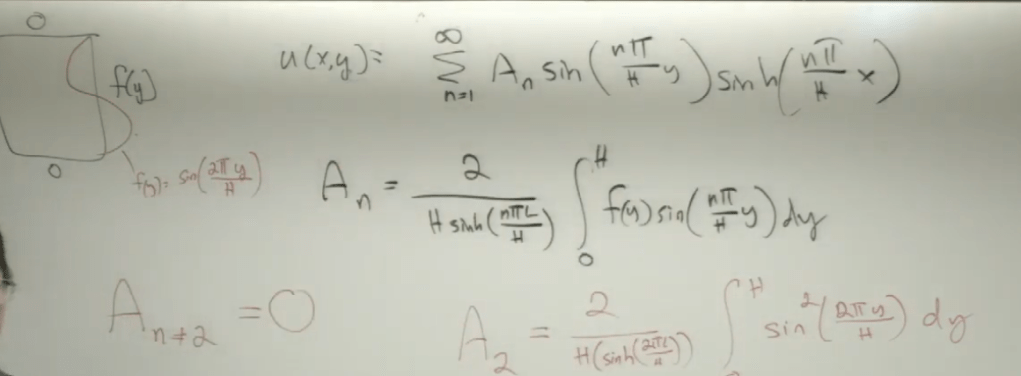 0
u(x,y) = ∞ Σ n=1 A_n sin(nπ/H y) sinh(nπ/H x)
f(y)
0
f(y) = sin(2πy/H)
A_n = 2/(H sinh(nπL/H)) ∫_0^H f(y) sin(nπ/H y) dy
A_{n≠2} = 0
A_2 = 2/(H(sinh(2πL/H))) ∫^H sin²(2πy/H) dy